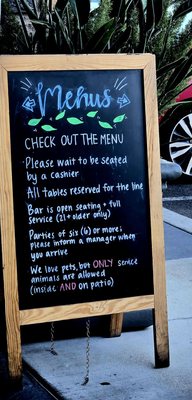 Menus
CHECK OUT THE MENU
·Please wait to be seated
by a cashier
·All tables reserved for the line
·Bar is open seating + full
service (21+ older only)
·Parties of six (6) or more;
please inform a manager when
you arrive
·We love pets, but ONLY service
animals are allowed
(inside AND on patio)